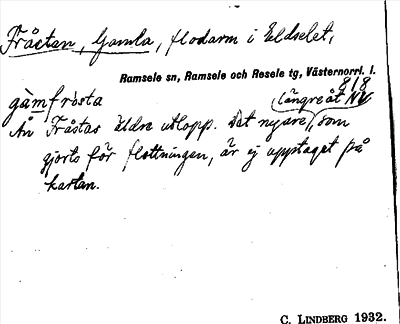 Fråstan, Gamla, flodarm i Eldselet,
Ramsele sn, Ramsele och Resele tg, Västernorrl. l.
818
gàmfròsta (längre åt NV
Än Fråstas äldre utlopp. Det nyare), som
gjorts för flottningen, är ej upptaget på
kartan.
C. LINDBERG 1932.